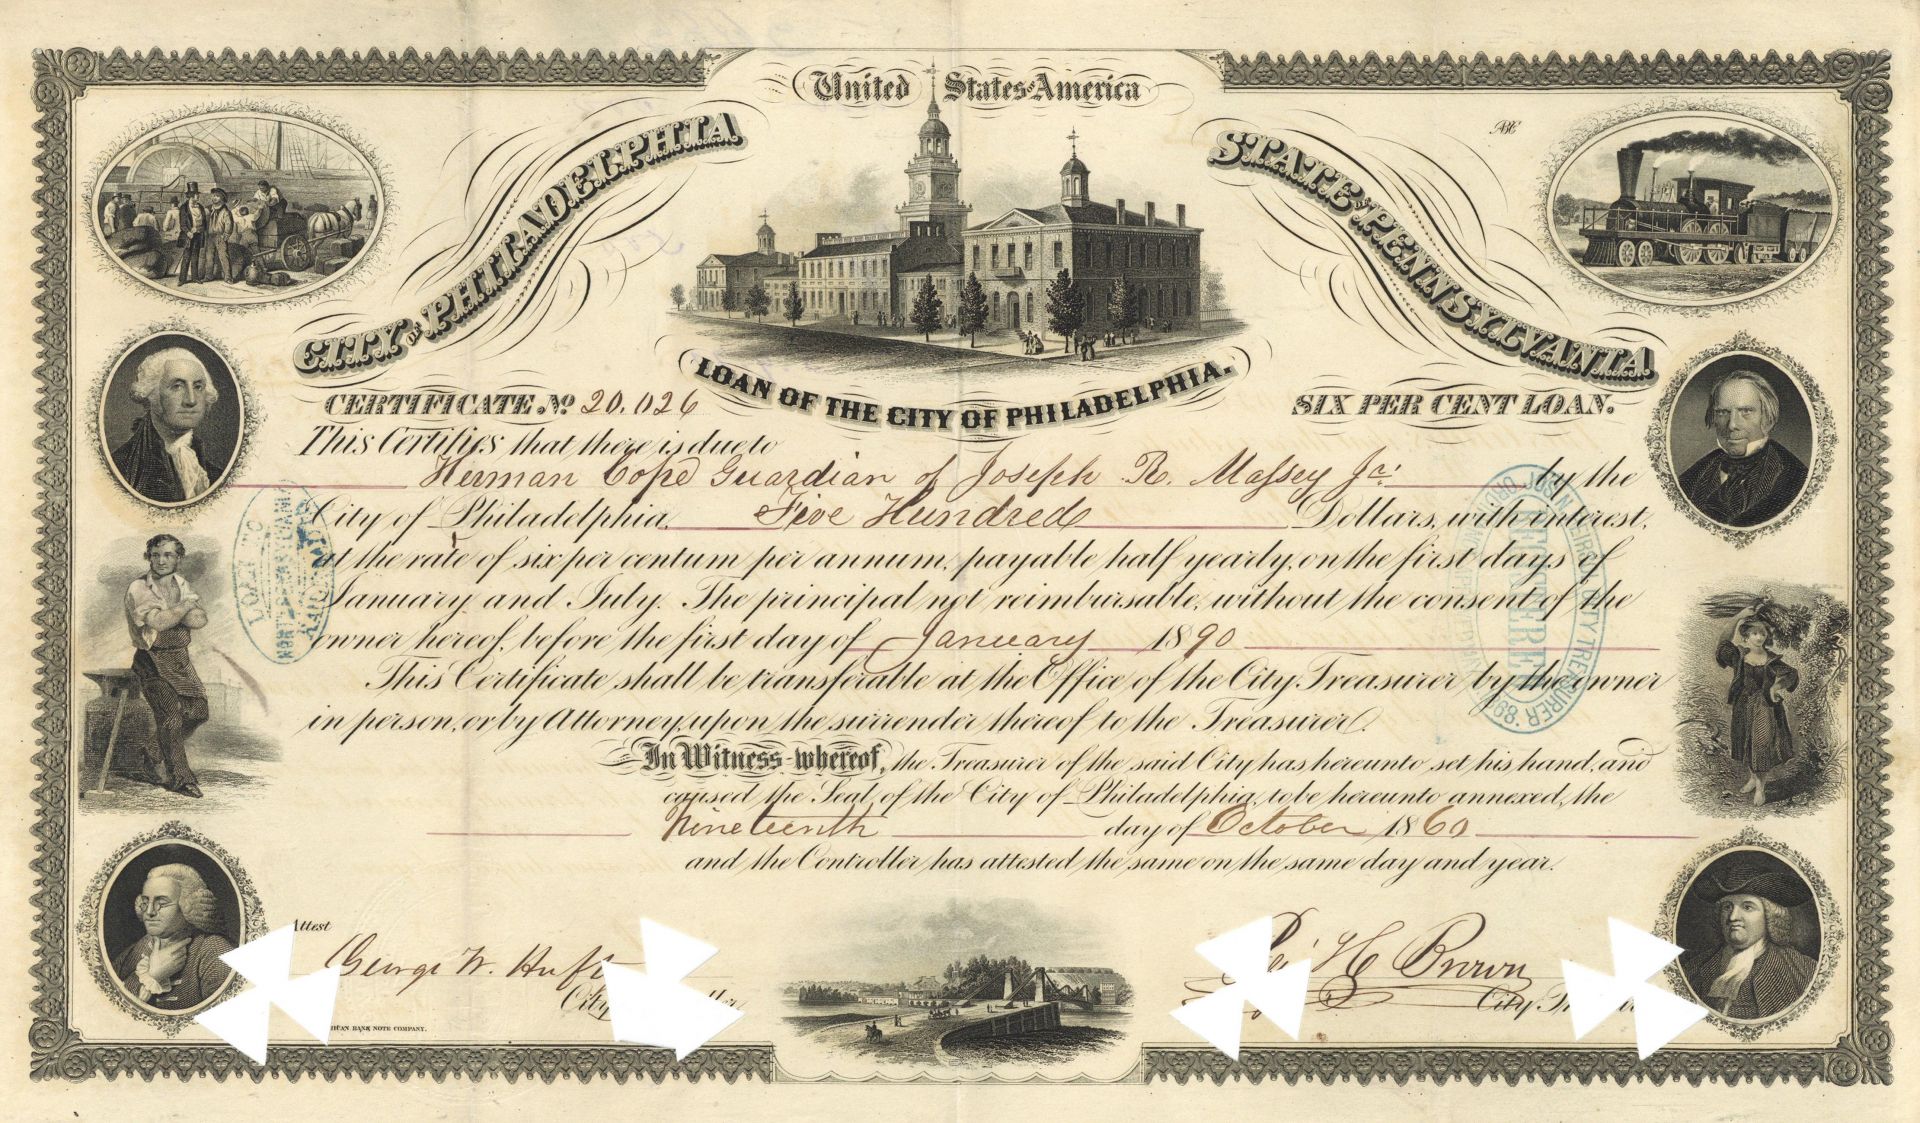 United States of America
CITY OF PHILADELPHIA
STATE OF PENNSYLVANIA
LOAN OF THE CITY OF PHILADELPHIA.
CERTIFICATE No 20,026
SIX PER CENT LOAN.
This Certifies that there is due to
Herman Cope Guardian of Joseph R. Massey Jr. by the
City of Philadelphia, Five Hundred Dollars, with interest,
at the rate of six per centum per annum, payable half yearly, on the first days of
January and July. The principal not reimbursable, without the consent of the
owner hereof, before the first day of January 1890
This Certificate shall be transferable at the Office of the City Treasurer by the owner
in person, or by Attorney, upon the surrender thereof to the Treasurer.
In Witness whereof, the Treasurer of the said City has hereunto set his hand, and
caused the Seal of the City of Philadelphia, to be hereunto annexed, the
Nineteenth day of October 1860
and the Controller has attested the same on the same day and year.
Attest
George W. Huft
City
H Brown
City
BANK NOTE COMPANY.
LOAN TO
NORTH PENNSYLVANIA
RAILROAD
CITY TREASURER